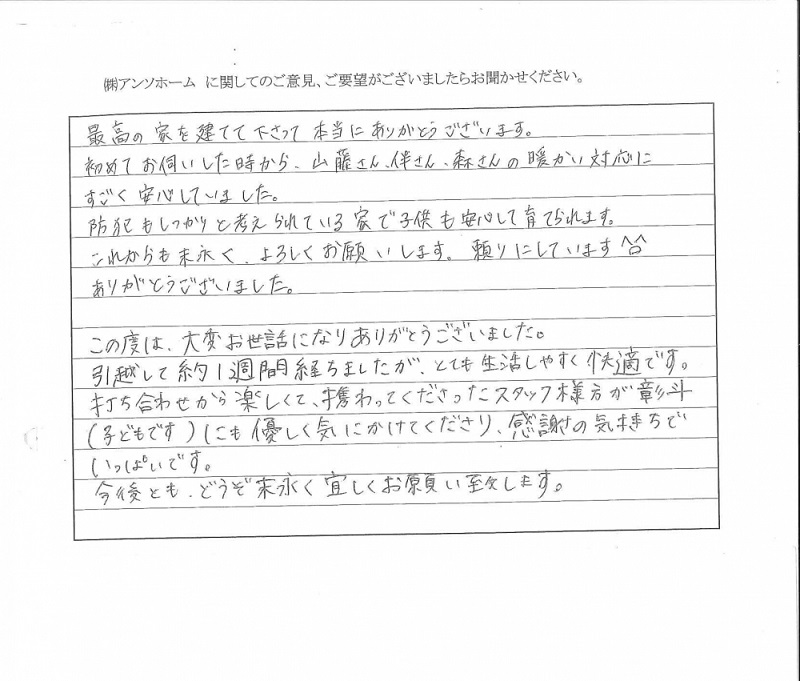 ㈱アンソホーム に関してのご意見、ご要望がございましたらお聞かせください。
最高の家を建てて下さって本当にありがとうございます。
初めてお伺いした時から、山薩さん、伴さん、森さんの暖かい対応に
すごく安心していました。
防犯もしっかりと考えられている家で子供も安心して育てられます。
これからも末永く、よろしくお願いします。頼りにしています^^
ありがとうございました。
この度は、大変お世話になりありがとうございました。
引越して約1週間経ちましたが、とても生活しやすく快適です。
打ち合わせから楽しくて、携わってくださったスタッフ様方が彰斗
(子どもです)にも優しく気にかけてくださり、感謝の気持ちで
いっぱいです。
今後とも、どうぞ末永く宜しくお願い致します。